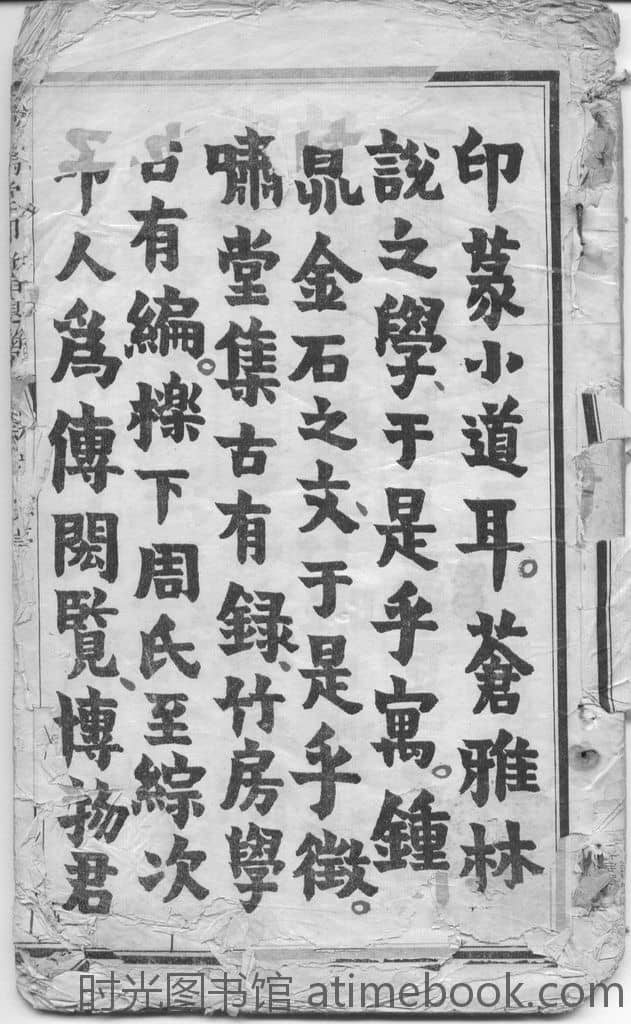 印篆小道耳。蒼雅林
說之學、于是乎寓。鍾
鼎金石之文、于是乎徵。
嘯堂集古有錄、竹房學
古有編。櫟下周氏至綜次
印人爲傳閎覽、博物君
子
时光图书馆 atimebook.com